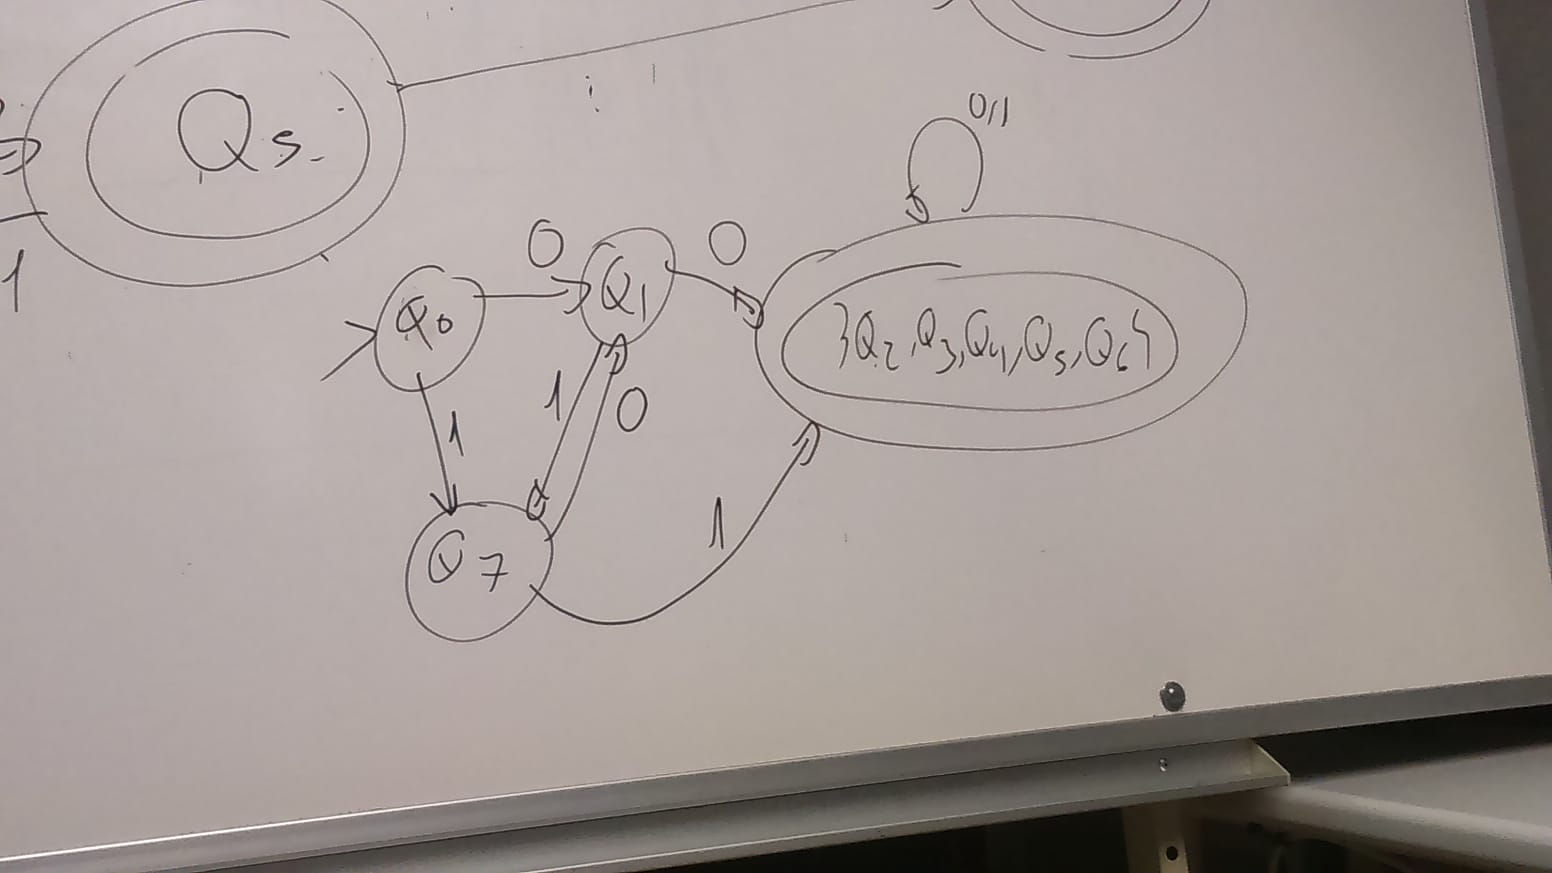 Q5
1
0,1
0
0
Q1
Q0
{Q2,Q3,Q4,Q5,Q6}
1
0
1
1
Q7